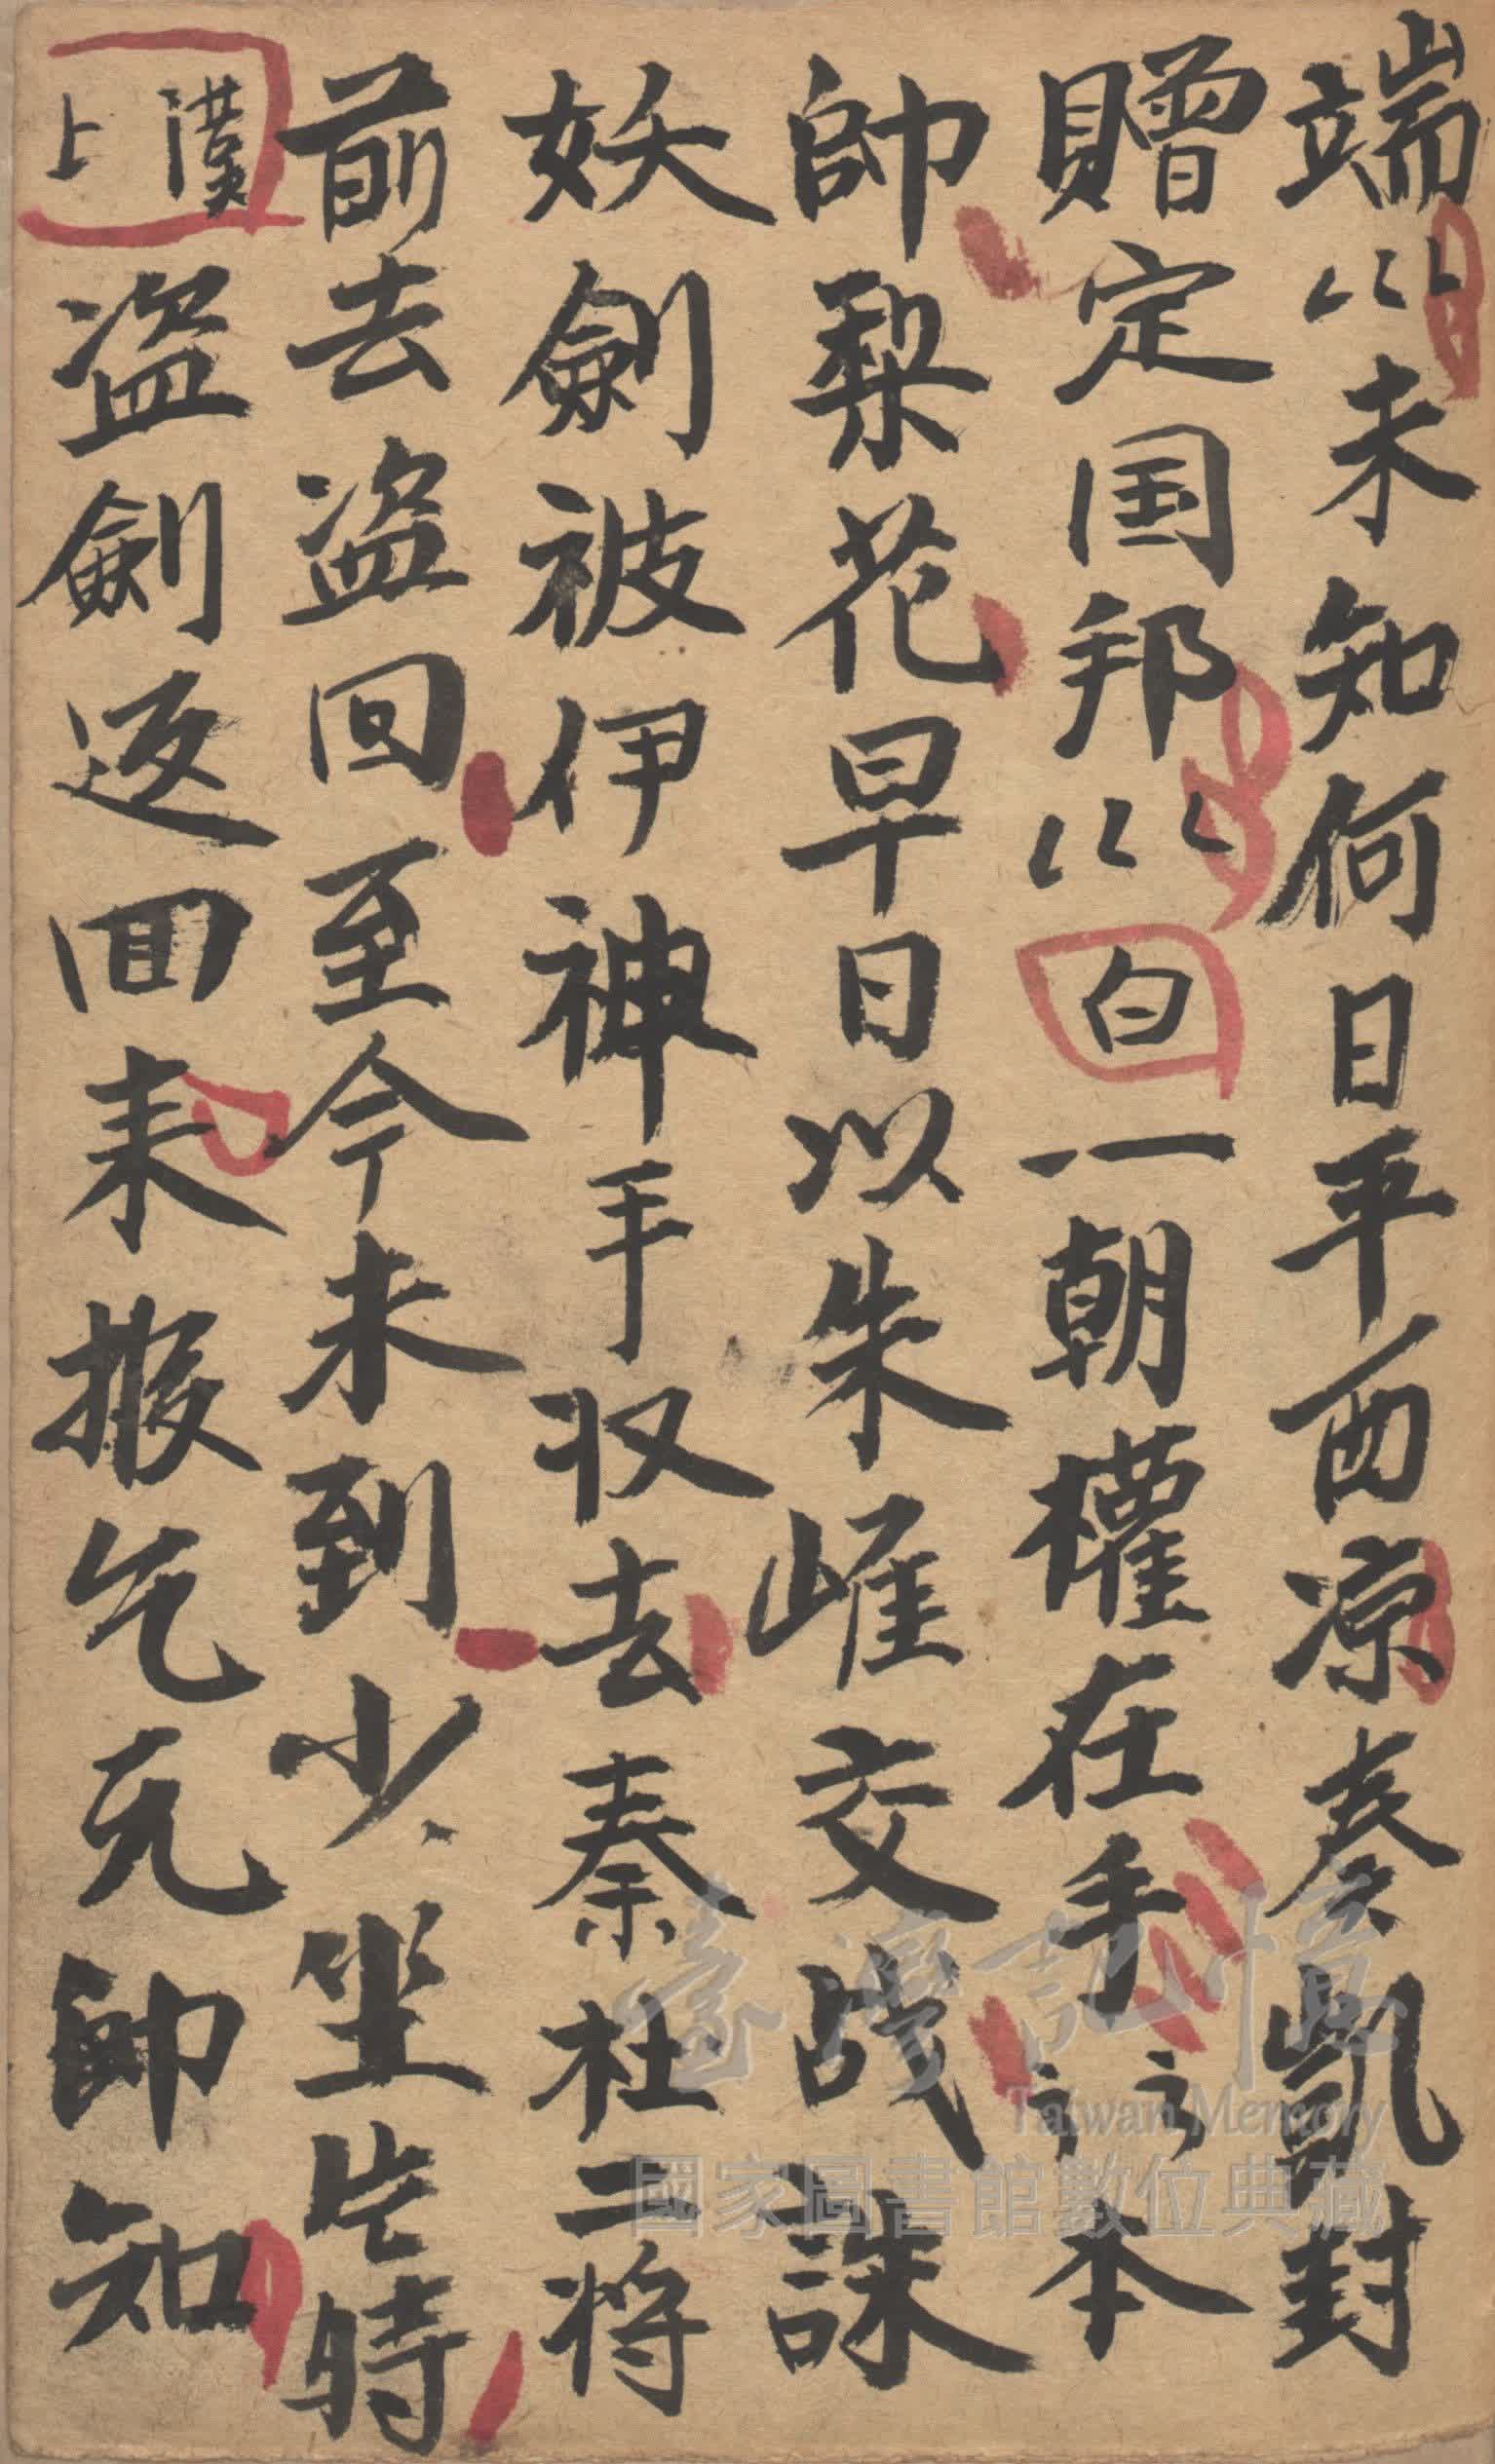 端〻未知何日平西凉奏凱封
贈定国邦〻白一朝權在手〻本
帥梨花早日以朱崕交战誅
妖劍被伊神手収去秦杜二将
前去盗回至今未到少坐片時
漢上盗劍返回来報乞元帥知
臺灣記憶
Taiwan Memory
國家圖書館數位典藏